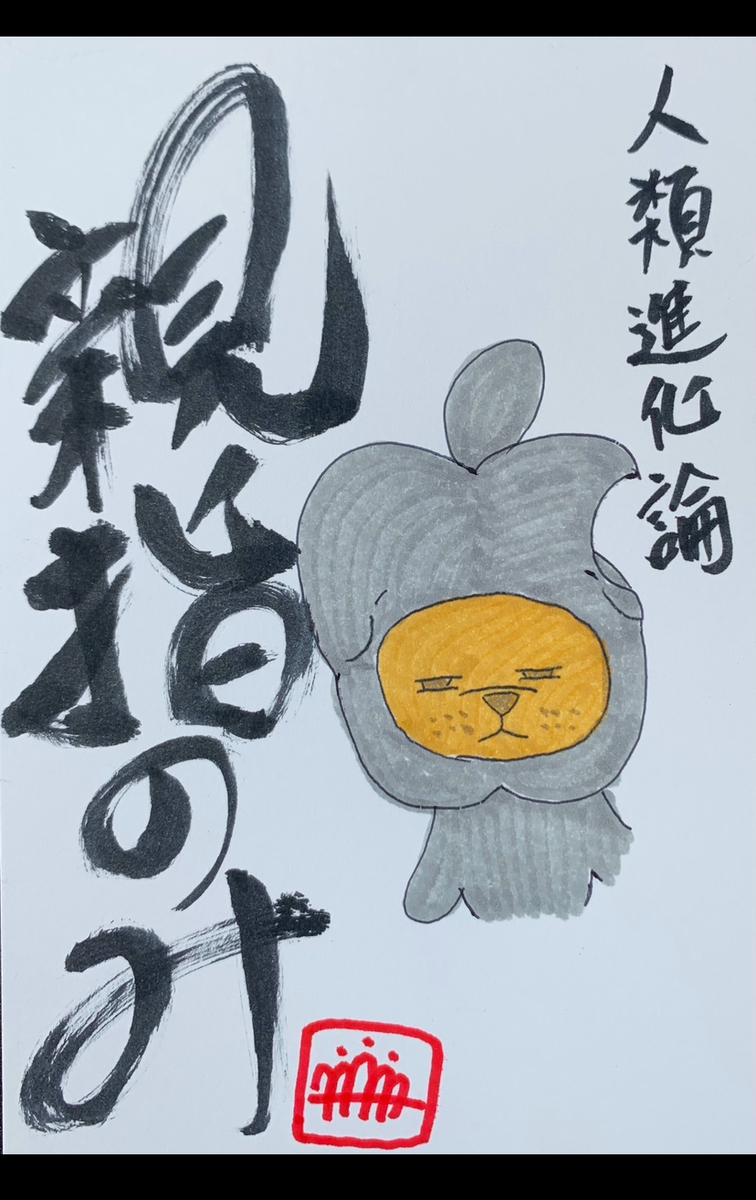 人類進化論
親指のみ